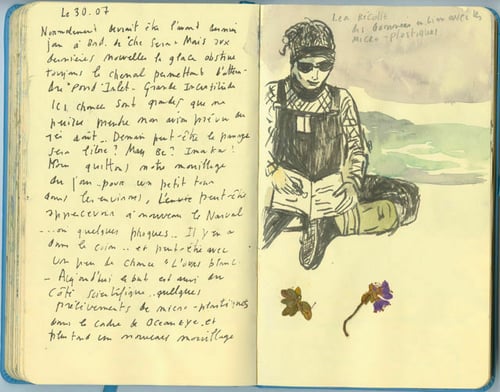 Le 30.07
Normalement devrait être l'avant dernier
jour à bord. de Mais aux
dernières nouvelles la glace obstrue
toujours le chenal permettant d'atten-
dre "Pond Inlet. Grande Incertitude
les chances sont grandes que ne
puisse prendre mon avion prévu du
1er août.. Demain peut-être le passage
sera libre? May Be? Imaka!
Nous quittons notre mouillage
pour un petit tour
dans les environs, peut-être
apercevoir à nouveau le Narval
...ou quelques phoques.. Il y en a
dans le coin.. et peut-être avec
un peu de chance "L'ours blanc.
- Aujourd'hui à but est aussi du
côté scientifique.. quelques
prélèvements de micro-plastiques
dans le cadre de OceanEye, et
plus tard un nouveau mouillage
Lea Récolte
des données en lien avec les
micro-plastiques